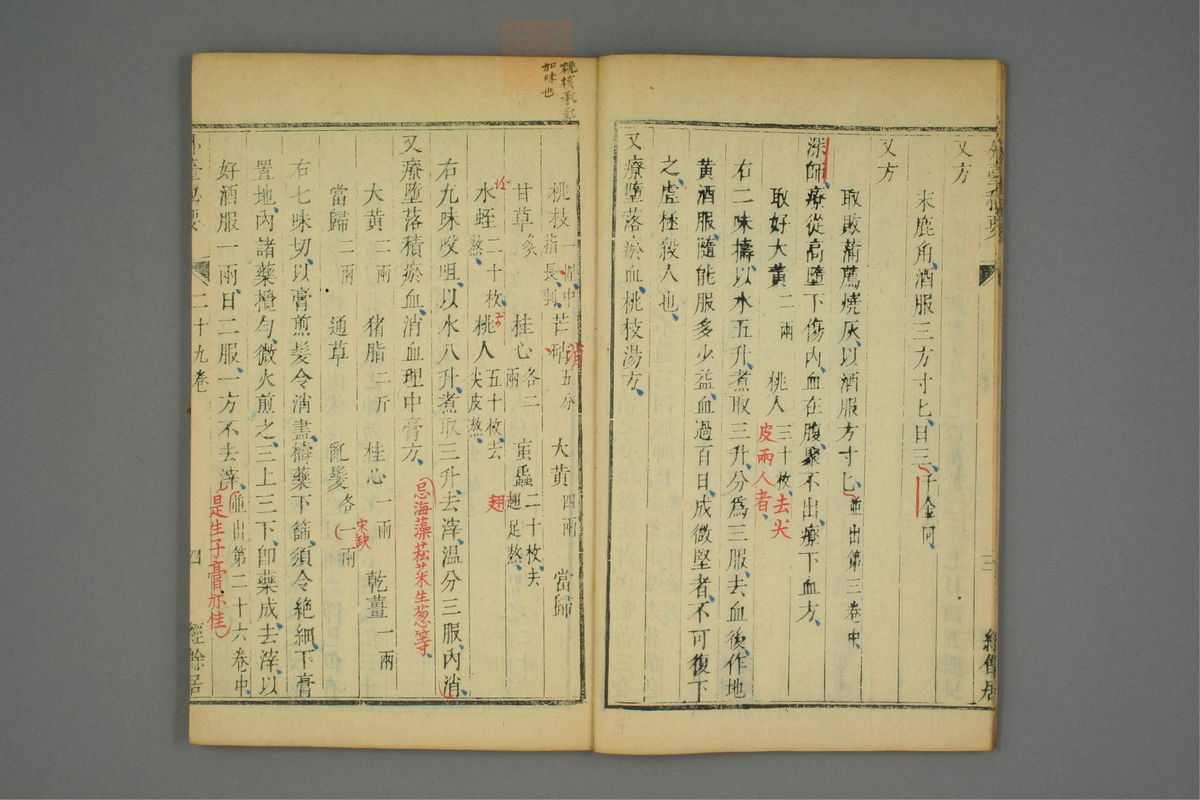 又方
末鹿角酒服三方寸匕日三千金同
又方
取敗蒲薦燒灰以酒服方寸匕並出第三卷中
深師療從高墮下傷內血在腹聚不出療下血方
取好大黃二兩 桃人三十枚去尖皮兩人者
右二味擣以水五升煮取三升分爲三服去血後作地
黃酒服隨能服多少益血過百日成微堅者不可復下
之虛極殺人也
又療墮落瘀血桃枝湯方
三
桃核承氣
加味也
桃枝一握中指長剉 芒硝五分 大黃四兩 當歸
消
甘草炙 桂心各二兩 蝱蟲二十枚去翅足熬
翅
水蛭二十枚熬 桃人五十枚去尖皮熬
右九味㕮咀以水八升煮取三升去滓溫分三服內消
又療墮落積瘀血消血理中膏方
忌海藻菘菜生葱等
大黃二兩 猪脂二斤 桂心一兩 乾薑一兩
當歸二兩 通草 亂髮各一兩
宋缺
右七味切以膏煎髮令消盡擣藥下篩須令絶細下膏
置地內諸藥攪勻微火煎之三上三下卽藥成去滓以
好酒服一兩日二服一方不去滓並出第二十六卷中
是生子膏亦佳
外臺秘要 二十九卷 四 經餘居